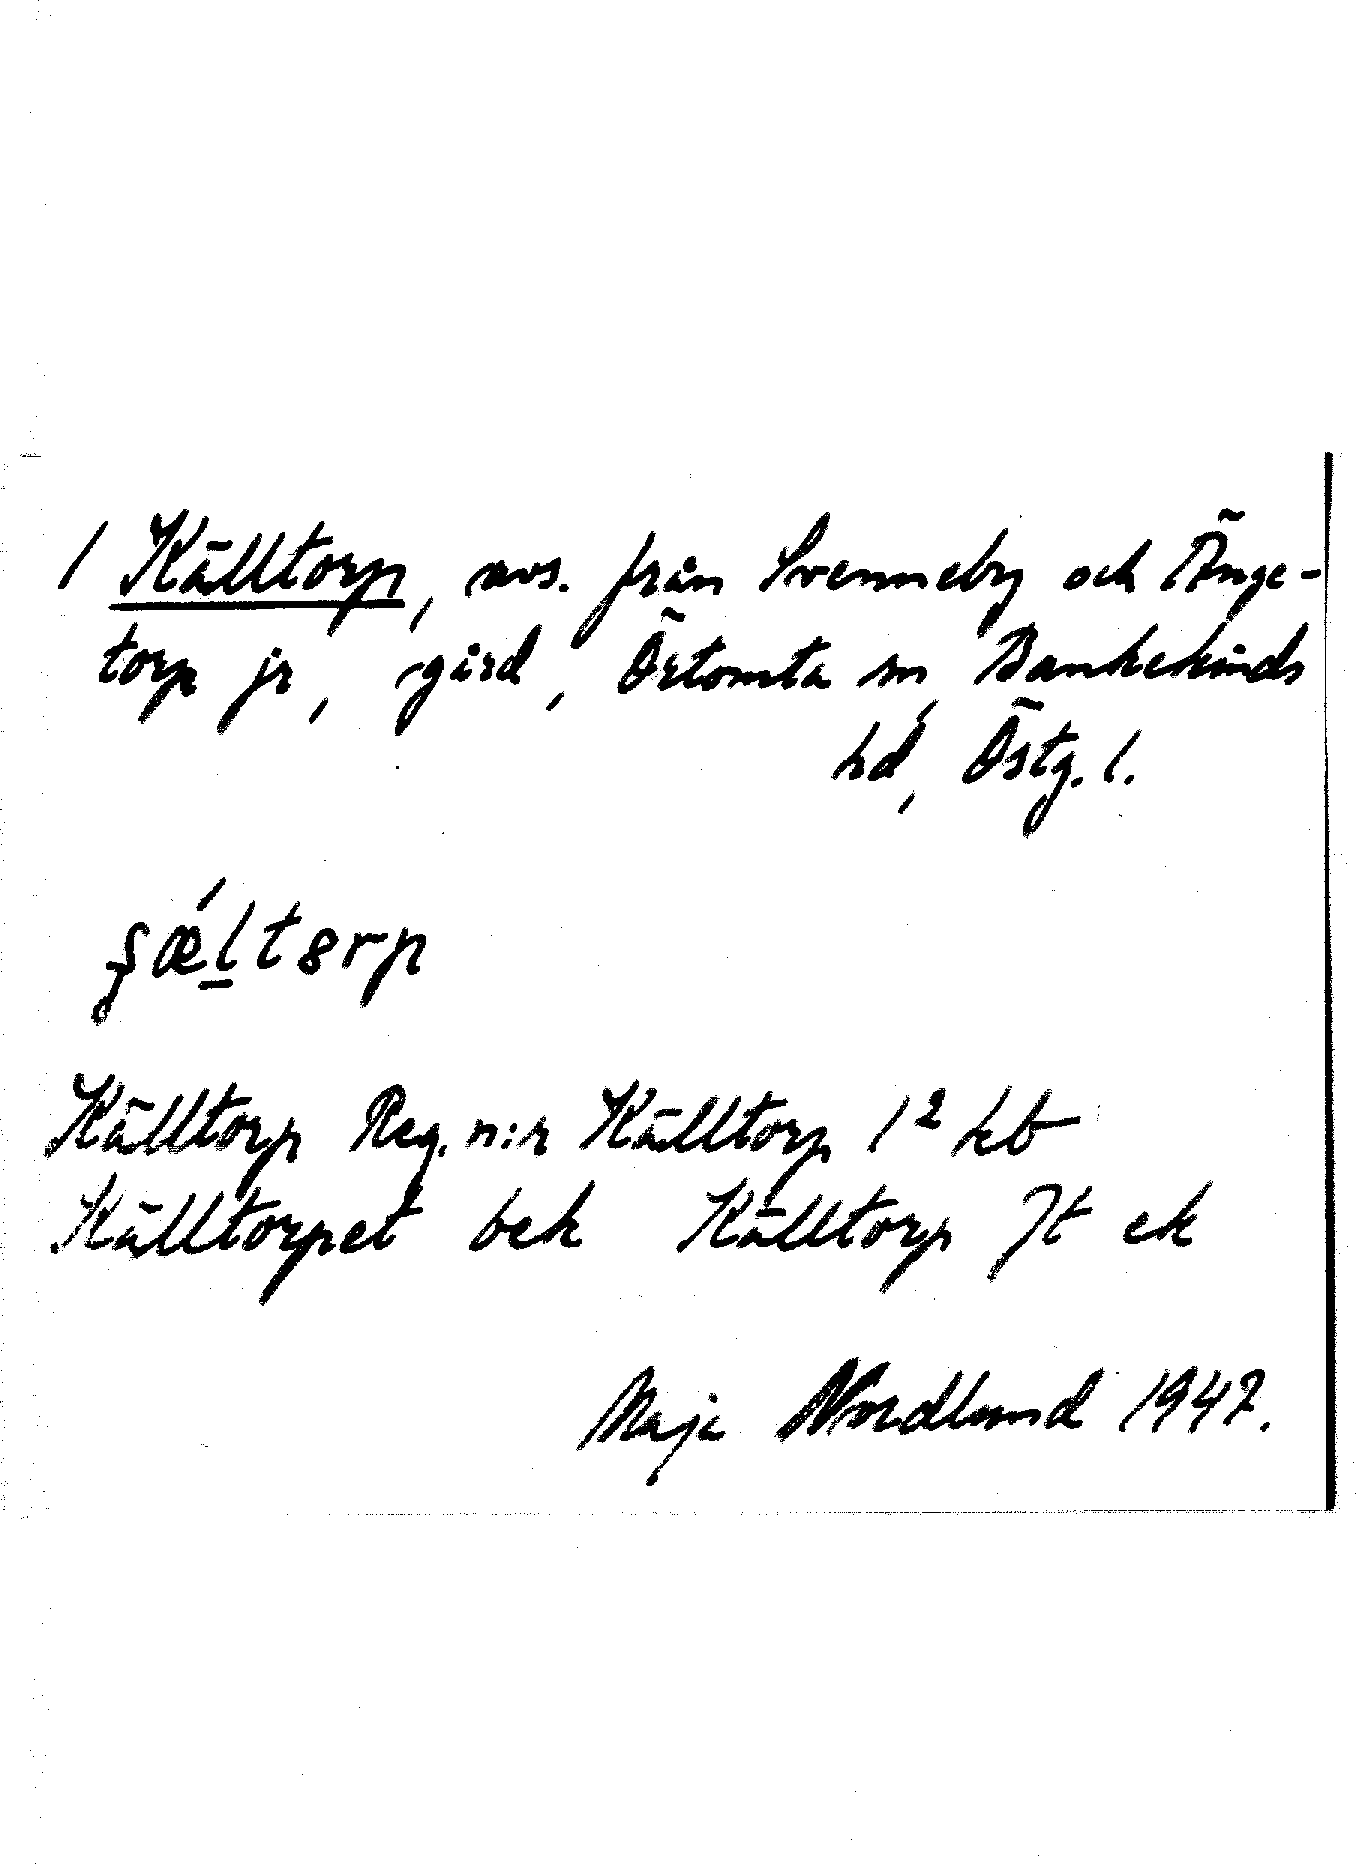 1 Källtorp, avs. från Svenneby och Änge-
torp jr, gård, Örtomta sn, Bankekinds
hd, Östg. l.
Källtorp Reg. n:r Källtorp 1² kb
Källtorpet bek Källtorp Jt ek
Maja Nordlund 1947.